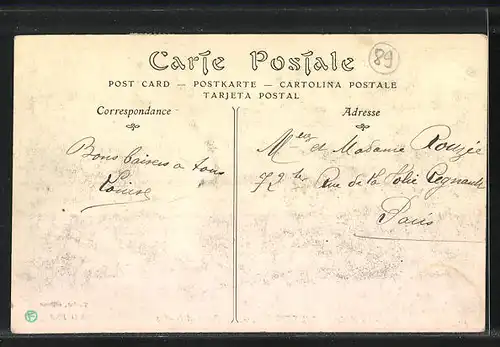 Carte Postale
89
POST CARD — POSTKARTE — CARTOLINA POSTALE
TARJETA POSTAL
Correspondance
Bons baisers a tous
Louise
Adresse
et Madame Rouzée
Rue de la Folie Regnault
Paris